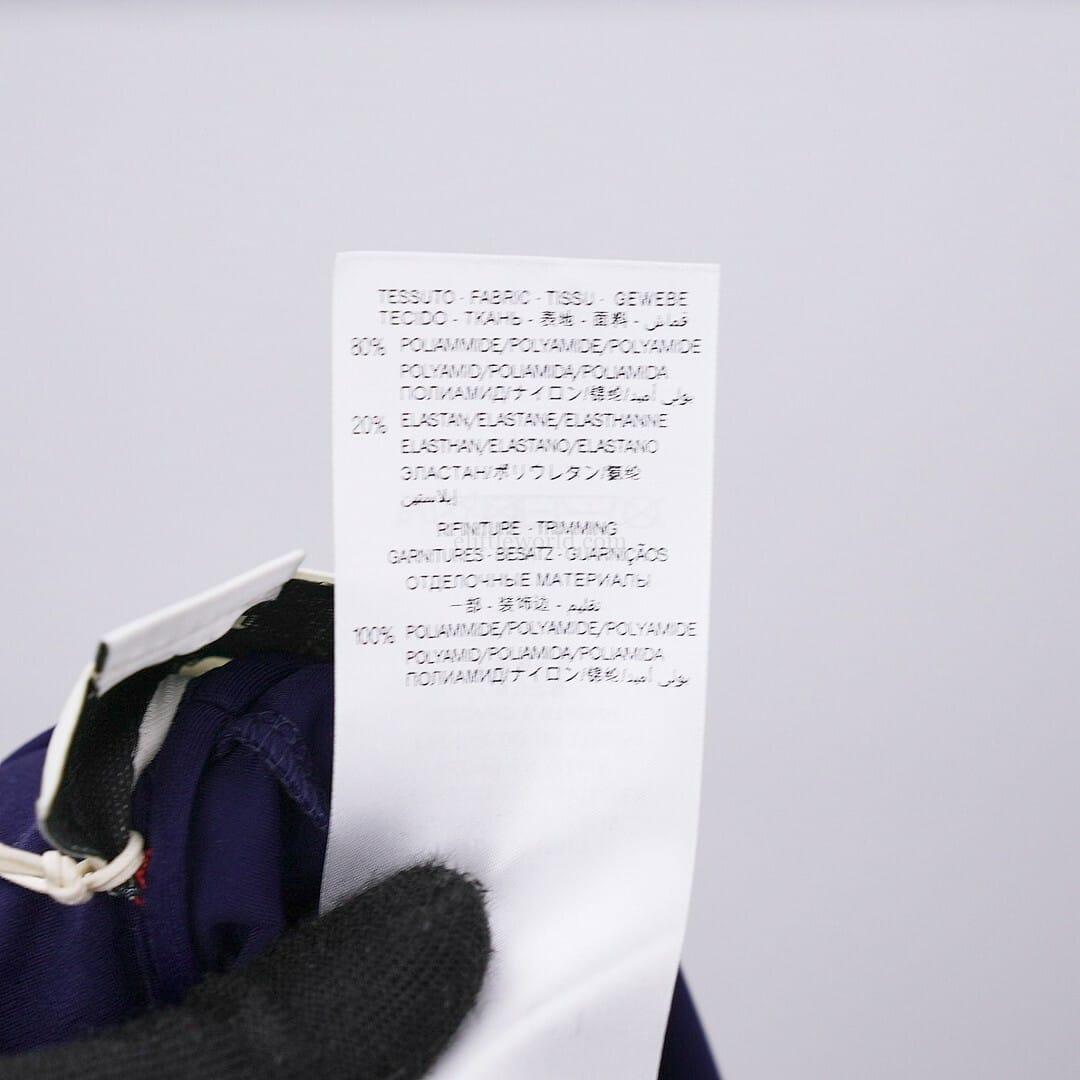 TESSUTO - FABRIC - TISSU - GEWEBE
TECIDO - ТКАНЬ - 表地 - 面料 - قماش
80% POLIAMMIDE/POLYAMIDE/POLYAMIDE
POLYAMID/POLIAMIDA/POLIAMIDA
ПОЛИАМИД/ナイロン/锦纶/بولي أميد
20% ELASTAN/ELASTANE/ELASTHANNE
ELASTHAN/ELASTANO/ELASTANO
ЭЛАСТАН/ポリウレタン/氨纶
إيلاستين
RIFINITURE - TRIMMING
elittleworld.com
GARNITURES - BESATZ - GUARNIÇÃOS
ОТДЕЛОЧНЫЕ МАТЕРИАЛЫ
一部 - 装饰边 - تقليم
100% POLIAMMIDE/POLYAMIDE/POLYAMIDE
POLYAMID/POLIAMIDA/POLIAMIDA
ПОЛИАМИД/ナイロン/锦纶/بولي أميد